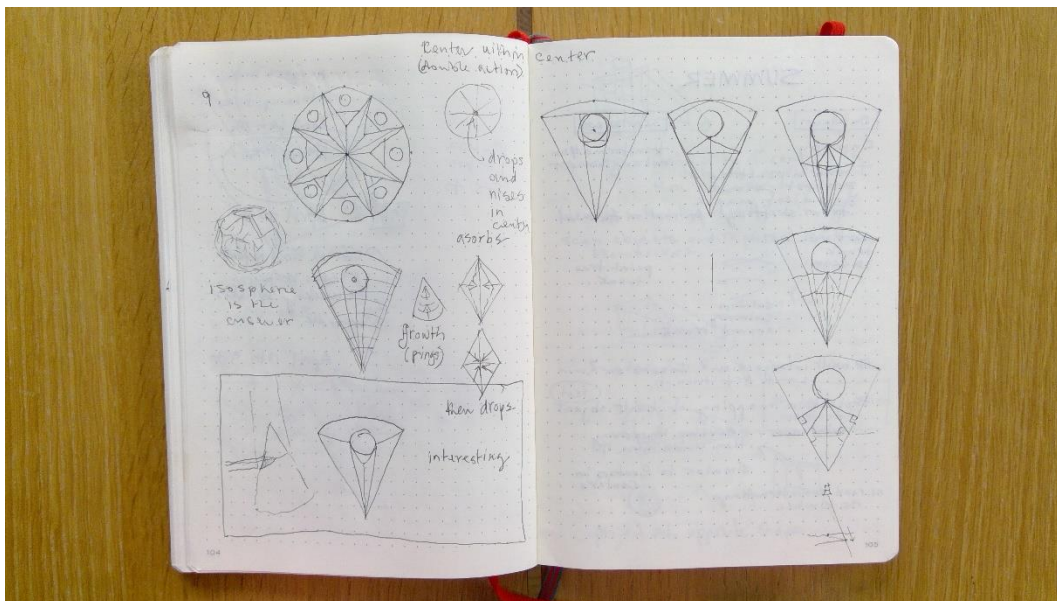 Center within center
(double action)
9
drops
and
rises
in
center
asorbs
isosphere
is the
answer
Growth
(pings)
then drops
interesting
104
105